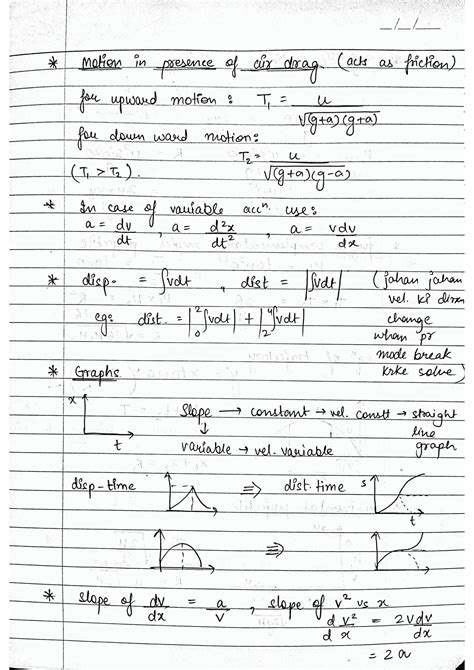 _/_/_
* Motion in presence of air drag (acts as friction)
for upward motion : T₁ = u / √(g+a)(g+a)
for down ward motion:
T₂ = u / √(g+a)(g-a)
(T₁ > T₂).
* In case of variable accⁿ. use:
a = dv/dt , a = d²x/dt² , a = vdv/dx
* disp. = ∫vdt , dist = |∫vdt| (jahan jahan
vel. ki dirxn
eg: dist. = |₀²∫vdt| + |₂⁴∫vdt| change
wham pr
mode break
krke solve)
* Graphs
x t Slope → constant → vel. constt → straight
line
graph
↓
variable → vel. variable
disp-time ⇒ dist. time s t
⇒
* slope of dv/dx = a/v , slope of v² vs x
d v²/d x = 2vdv/dx
= 2a